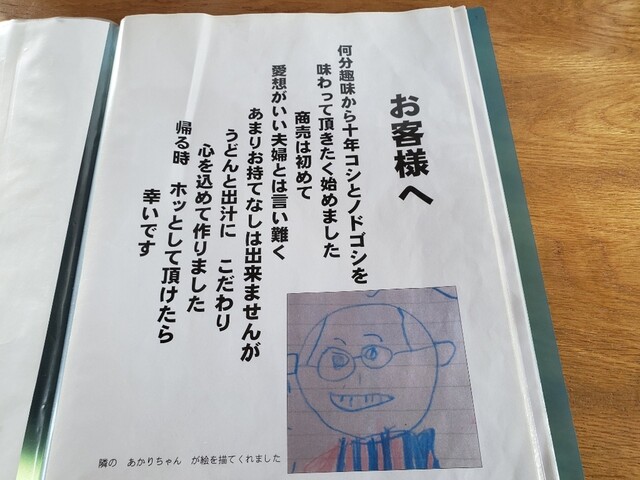 お客様へ
何分趣味から十年コシとノドゴシを
味わって頂きたく始めました
商売は初めて
愛想がいい夫婦とは言い難く
あまりお持てなしは出来ませんが
うどんと出汁に こだわり
心を込めて作りました
帰る時 ホッとして頂けたら
幸いです
隣の あかりちゃん が絵を描てくれました